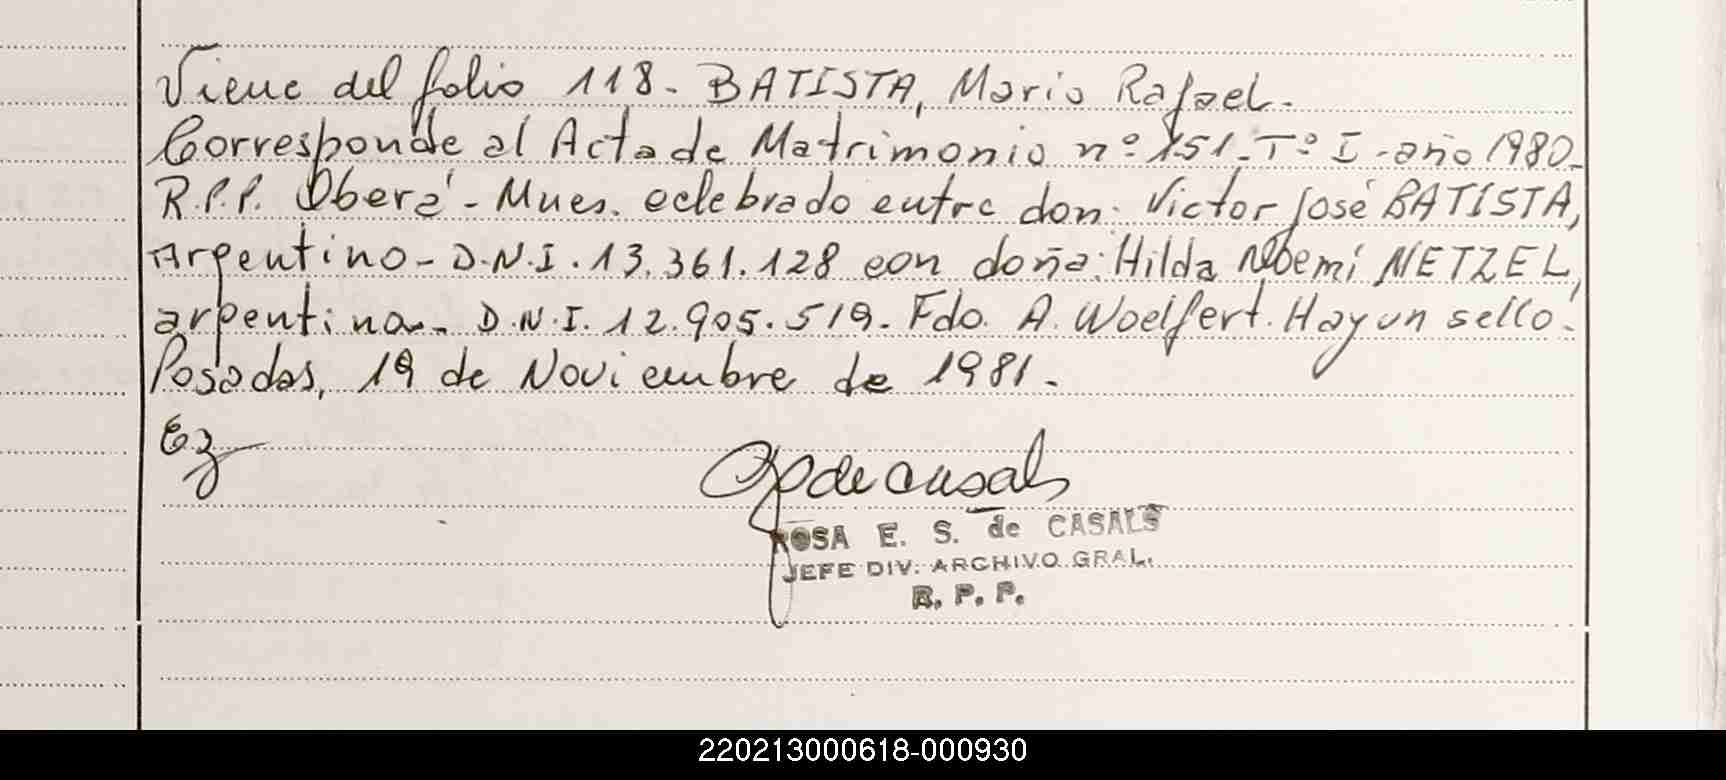 Viene del folio 118. BATISTA, Mario Rafael.
Corresponde al Acta de Matrimonio nº 151. Tº I - año 1980.
R.P.P. Oberá - Mnes. celebrado entre don: Victor José BATISTA,
Argentino - D.N.I. 13.361.128 con doña: Hilda Noemí NETZEL,
argentina. D.N.I. 12.905.519. Fdo. A. Woelfert. Hay un sello.
Posadas, 19 de Noviembre de 1981.
de Casals
ROSA E. S. de CASALS
JEFE DIV. ARCHIVO GRAL.
R. P. P.
220213000618-000930